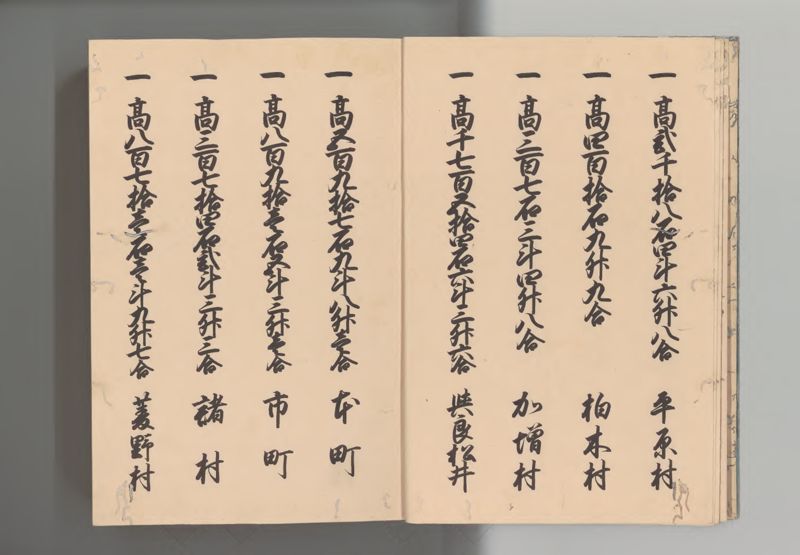 一 高弐千拾八石四斗六升八合 平原村
一 高四百拾石九升九合 柏木村
一 高三百七石三斗四升八合 加増村
一 高千七百五拾四石六斗三升六合 与良松井
一 高五百九拾七石九斗八升壱合 本町
一 高八百九拾壱石五斗三升壱合 市町
一 高三百七拾四石弐斗三升三合 諸村
一 高八百七拾壱石壱斗九升七合 菱野村